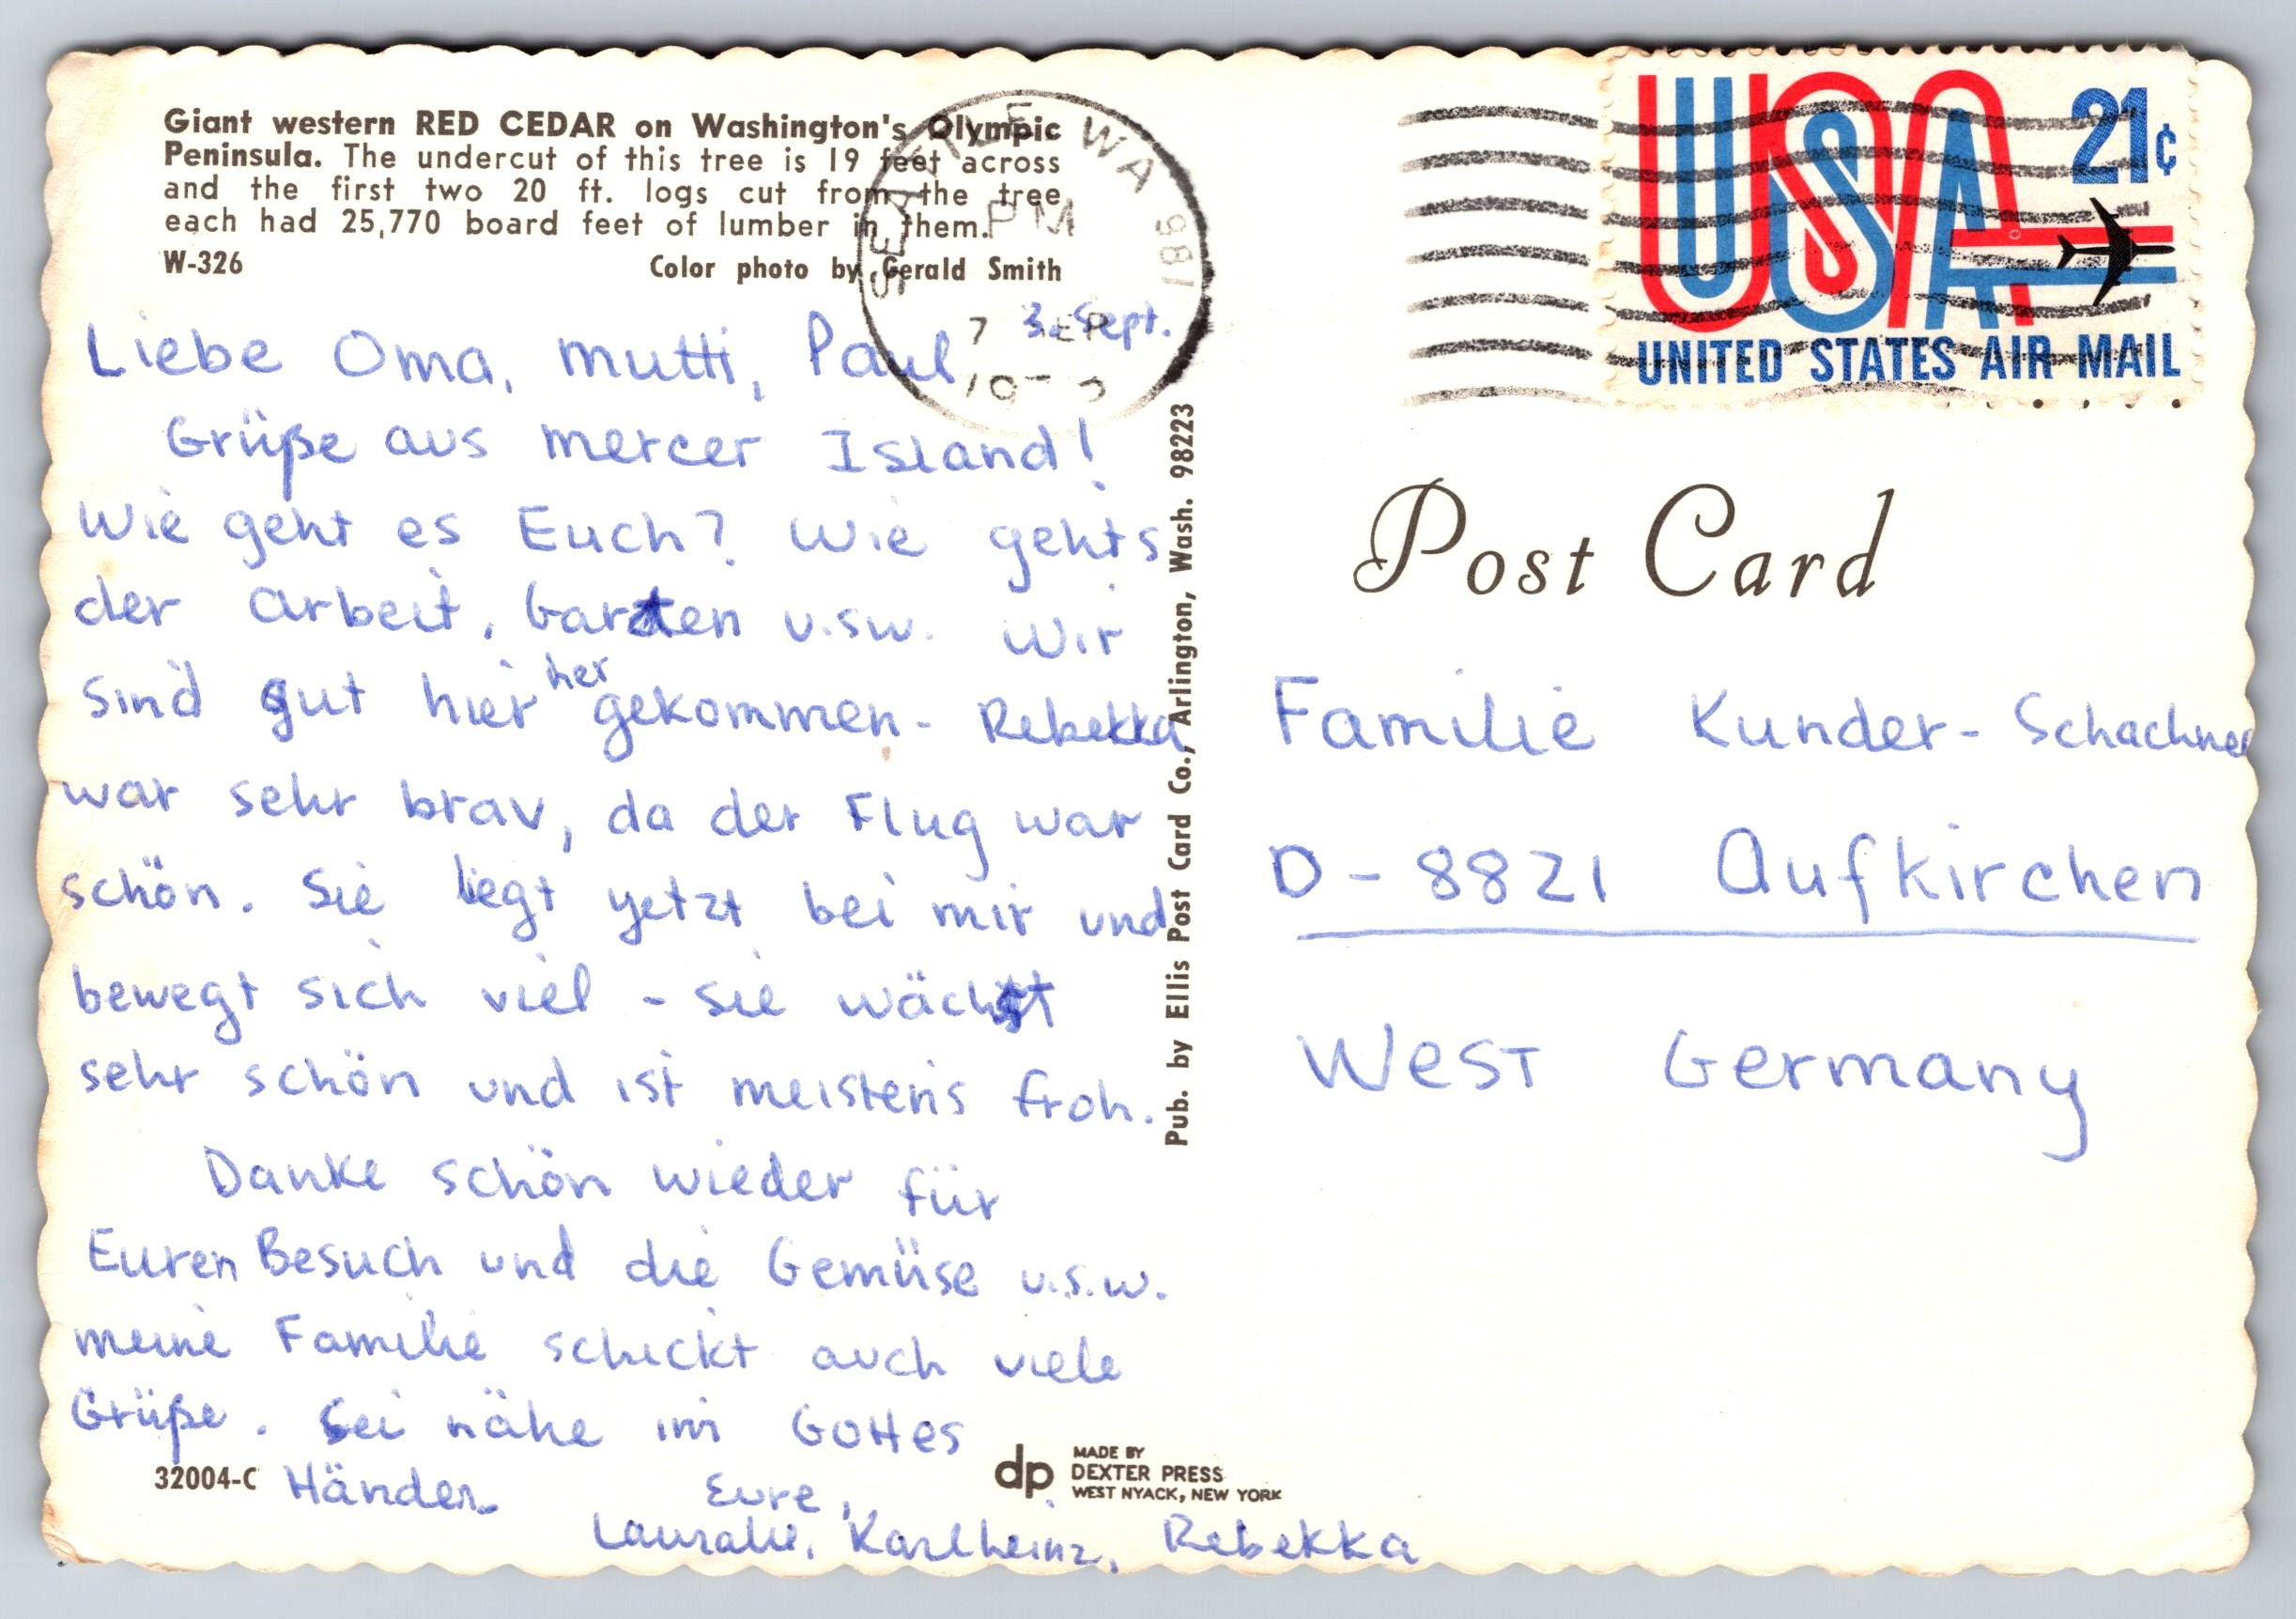 Giant western RED CEDAR on Washington's Olympic
Peninsula. The undercut of this tree is 19 feet across
and the first two 20 ft. logs cut from the tree
each had 25,770 board feet of lumber in them.
W-326 Color photo by Gerald Smith
SEATTLE WA 981
PM
7 SEP
USA 21¢
UNITED STATES AIR MAIL
3. Sept.
Liebe Oma, mutti, Paul
Grüße aus mercer Island!
Wie geht es Euch? Wie gehts
der arbeit, Garten u.sw. Wir
sind gut hierher gekommen - Rebekka
war sehr brav, da der Flug war
schön. Sie liegt yetzt bei mir und
bewegt sich viel - sie wächst
sehr schön und ist meistens froh.
Danke schön wieder für
Euren Besuch und die Gemüse u.s.w.
meine Familie schickt auch viele
Grüße. Sei nähe im Gottes
Händen
Eure,
Lauralie, Karlheinz, Rebekka
32004-C
dp MADE BY
DEXTER PRESS
WEST NYACK, NEW YORK
Pub. by Ellis Post Card Co., Arlington, Wash. 98223
Post Card
Familie Kunder-Schachner
D-8821 Aufkirchen
West Germany